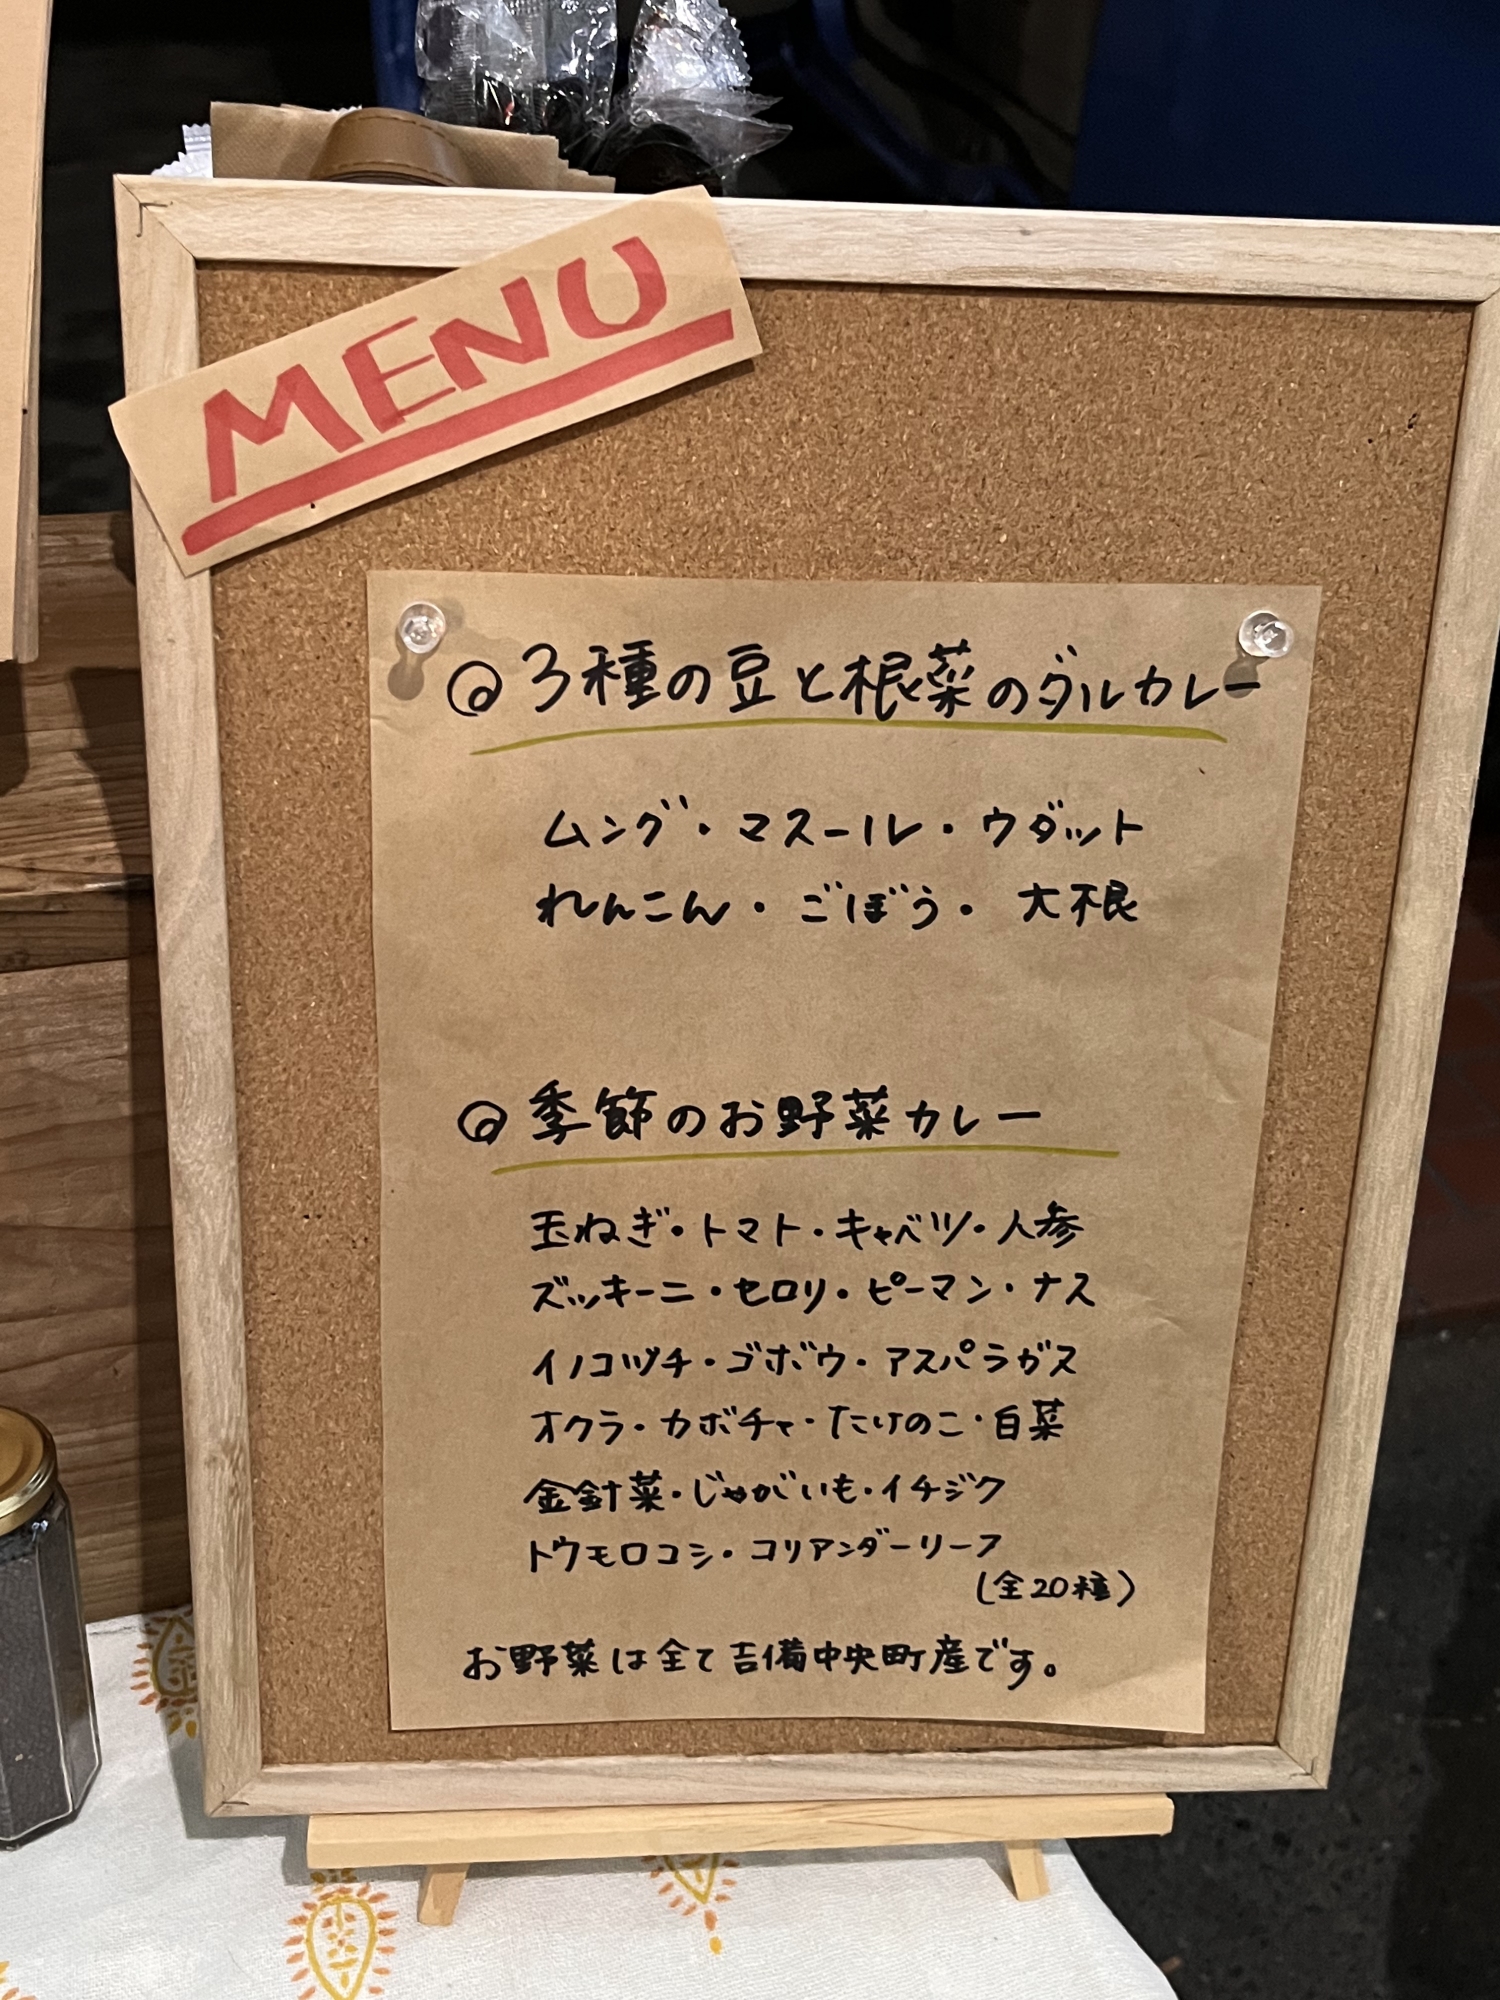 MENU
◎3種の豆と根菜のダルカレー
ムング・マスール・ウダット
れんこん・ごぼう・大根
◎季節のお野菜カレー
玉ねぎ・トマト・キャベツ・人参
ズッキーニ・セロリ・ピーマン・ナス
イノコヅチ・ゴボウ・アスパラガス
オクラ・カボチャ・たけのこ・白菜
金針菜・じゃがいも・イチジク
トウモロコシ・コリアンダーリーフ
(全20種)
お野菜は全て吉備中央町産です。